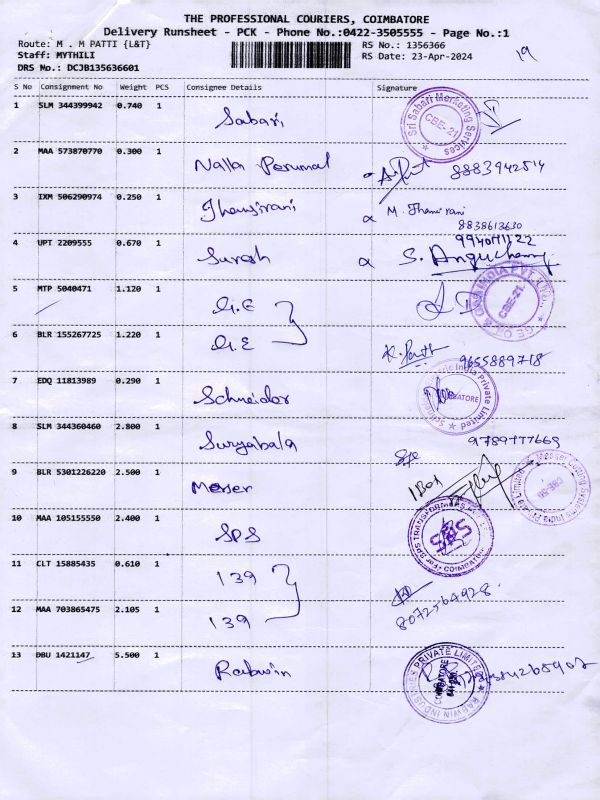 THE PROFESSIONAL COURIERS, COIMBATORE
Delivery Runsheet - PCK - Phone No.:0422-3505555 - Page No.:1
Route: M . M PATTI {L&T} RS No.: 1356366
Staff: MYTHILI RS Date: 23-Apr-2024 19
DRS No.: DCJB135636601
S No Consignment No Weight PCS Consignee Details Signature
1 SLM 344399942 0.740 1 Sabari Sri Sabari Marketing Services CBE-21
2 MAA 573870770 0.300 1 Nalla Perumal 8883942514
3 IXM 506290974 0.250 1 Jhansirani M. Jhansi rani
8838613630
4 UPT 2209555 0.670 1 Suresh S.
5 MTP 5040471 1.120 1 G.E CBE-21.
6 BLR 155267725 1.220 1 G.E 9655889718
7 EDQ 11813989 0.290 1 Schneider India Private Limited
8 SLM 344360460 2.800 1 Suryabala 9789777669
9 BLR 5301226220 2.500 1 Messer 1 Box Messer Cutting Systems India Private Limited
10 MAA 105155550 2.400 1 SPS For SPS TRANSFORMERS SPS COIMBATORE
11 CLT 15885435 0.610 1 139
12 MAA 703865475 2.105 1 139 8072564928
13 DBU 1421147 5.500 1 Rabwin RABWIN INDUSTRIES PRIVATE LIMITED COIMBATORE